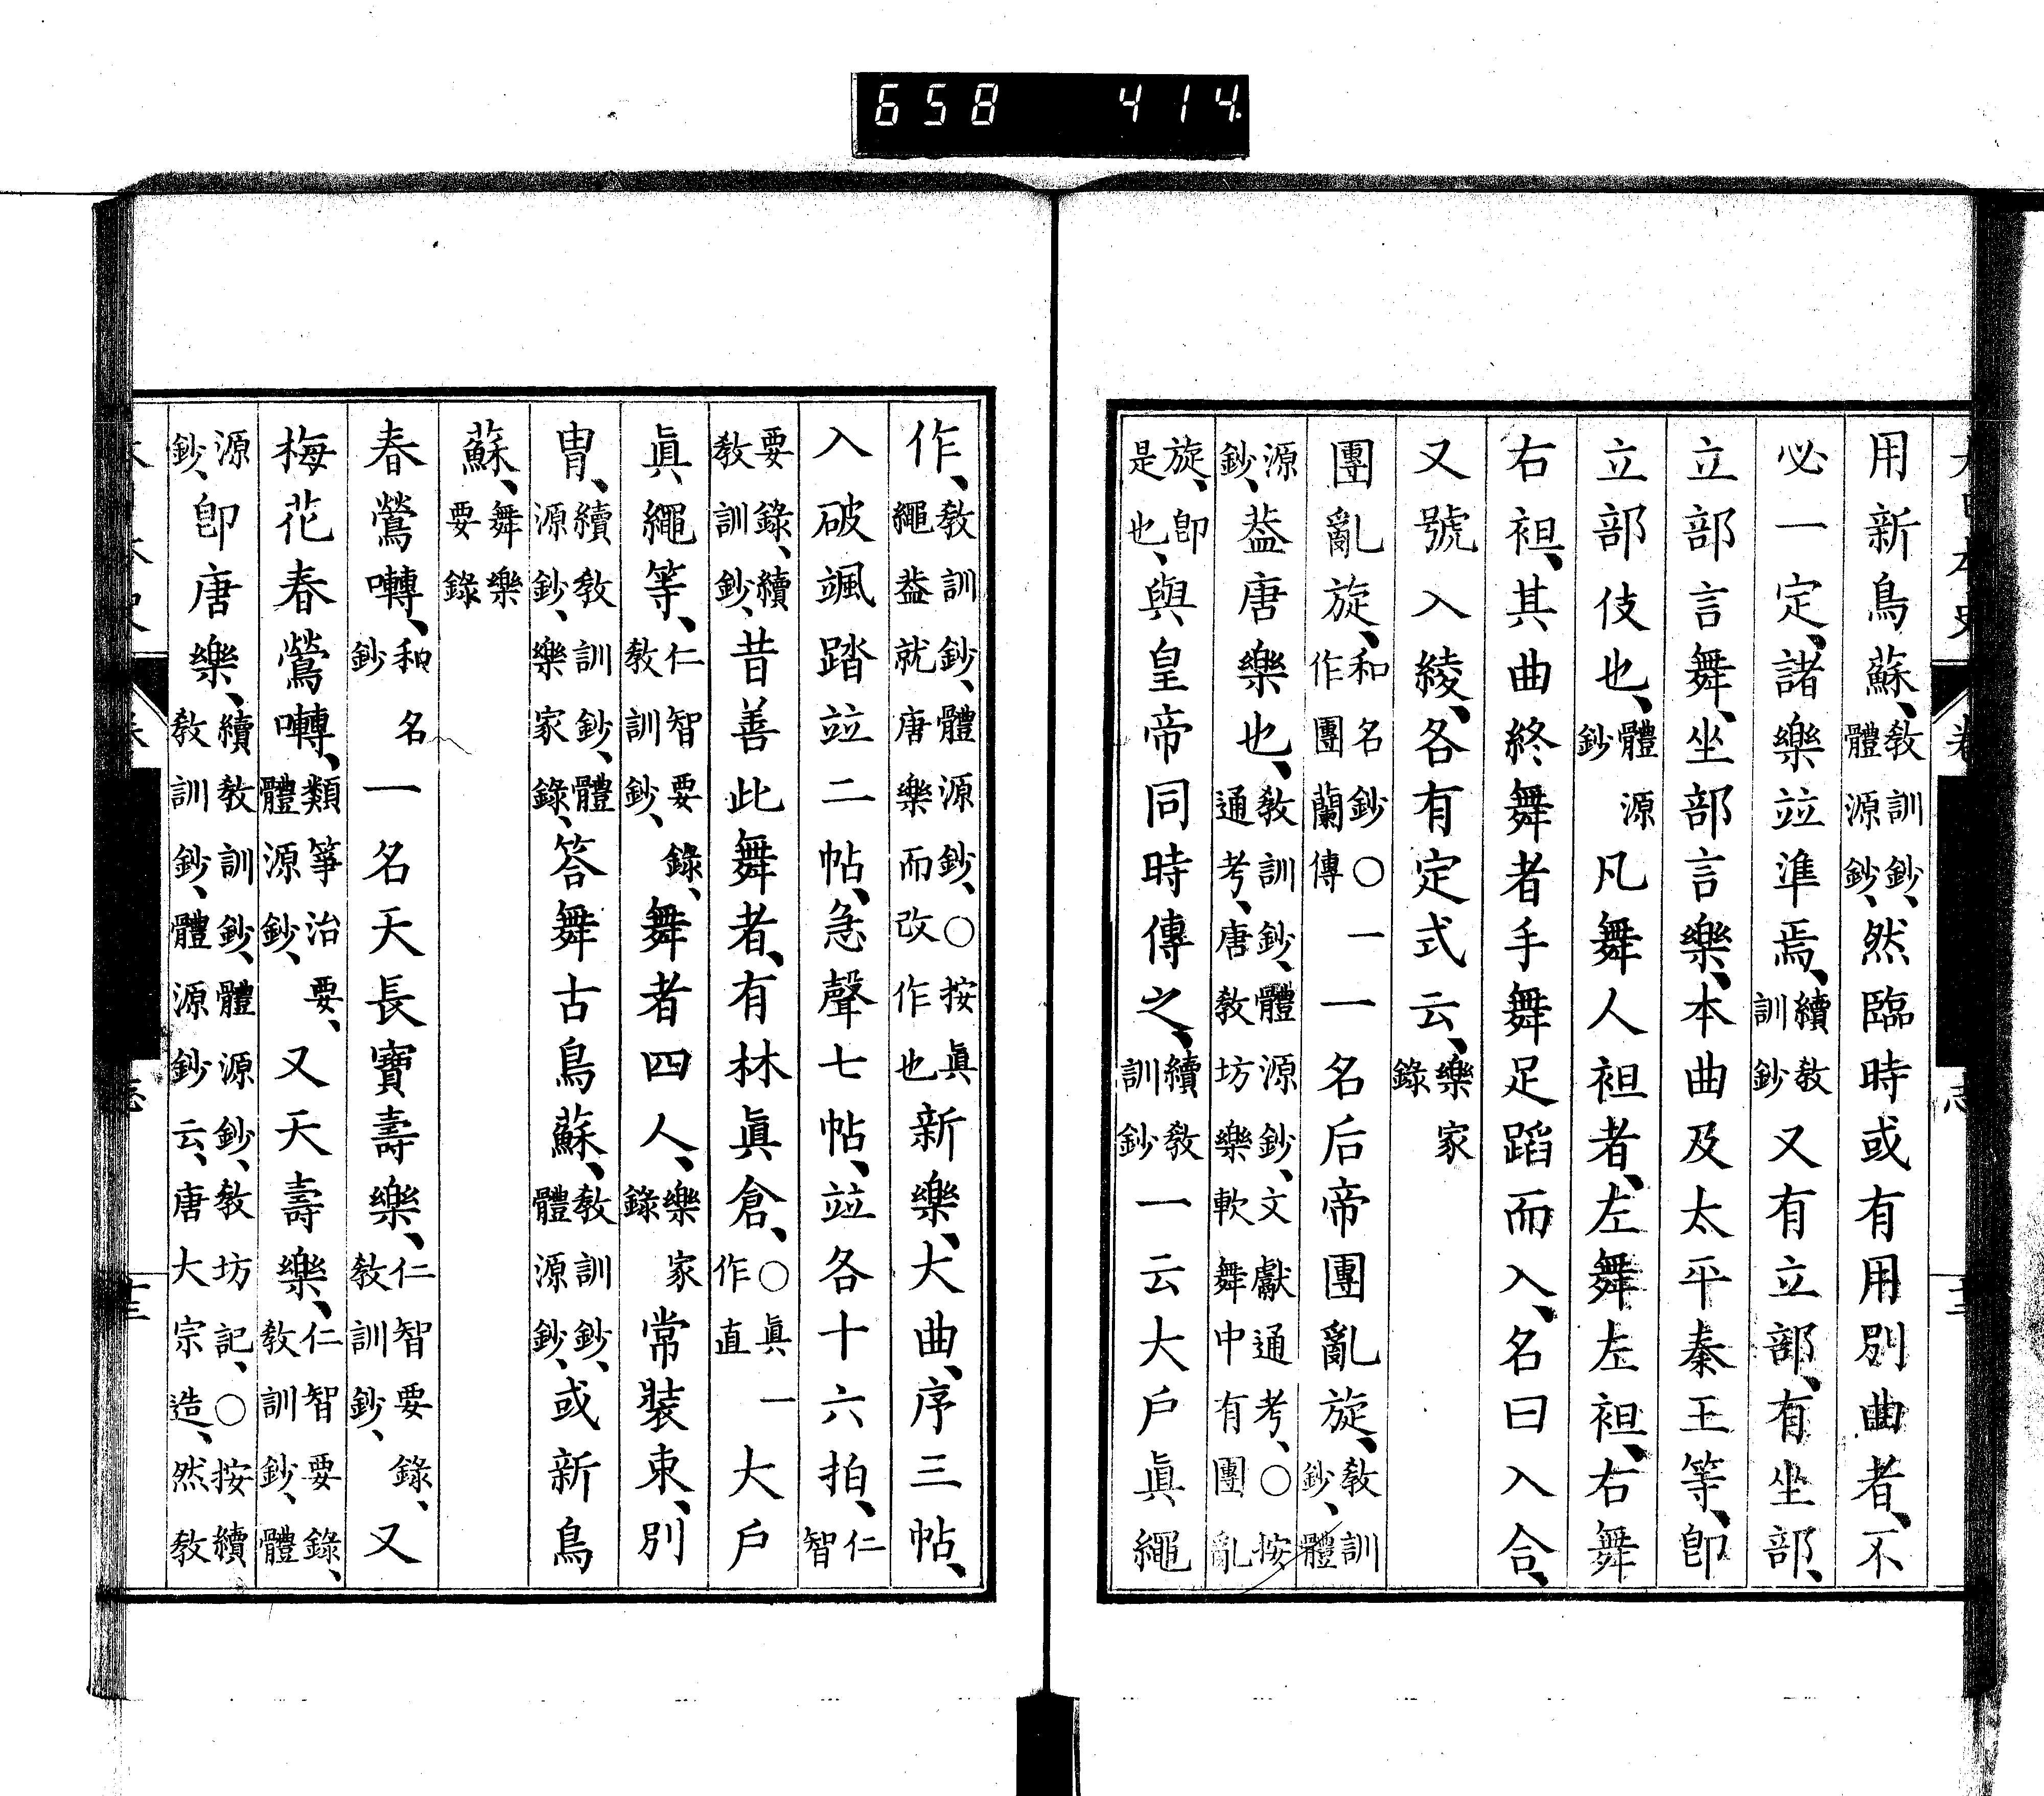 658 414
用新鳥蘇、教訓鈔、體源鈔、然臨時或有用別曲者、不
必一定、諸樂竝準焉、續教訓鈔又有立部、有坐部、
立部言舞、坐部言樂、本曲及太平秦王等、卽
立部伎也、體源鈔凡舞人袒者、左舞左袒、右舞
右袒、其曲終舞者手舞足蹈而入、名曰入合、
又號入綾、各有定式云、樂家錄
團亂旋、和名鈔〇一作團蘭傳一名后帝團亂旋、教訓鈔、體
源鈔、蓋唐樂也、教訓鈔、體源鈔、文獻通考、〇按通考、唐教坊樂軟舞中有團亂
旋、卽是也、與皇帝同時傳之、續教訓鈔一云大戶眞繩
作、教訓鈔、體源鈔、〇按眞繩蓋就唐樂而改作也新樂、大曲、序三帖、
入破颯踏竝二帖、急聲七帖、竝各十六拍、仁智
要錄、續教訓鈔、昔善此舞者、有林眞倉、〇眞一作直大戶
眞繩等、仁智要錄、教訓鈔、舞者四人、樂家錄常裝束、別
冑、續教訓鈔、體源鈔、樂家錄、答舞古鳥蘇、教訓鈔、體源鈔、或新鳥
蘇、舞樂要錄
春鶯囀、和名鈔一名天長寶壽樂、仁智要錄、教訓鈔、又
梅花春鶯囀、類箏治要、體源鈔、又天壽樂、仁智要錄、教訓鈔、體
源鈔、卽唐樂、續教訓鈔、體源鈔、教坊記、〇按續教訓鈔、體源鈔云、唐大宗造、然教